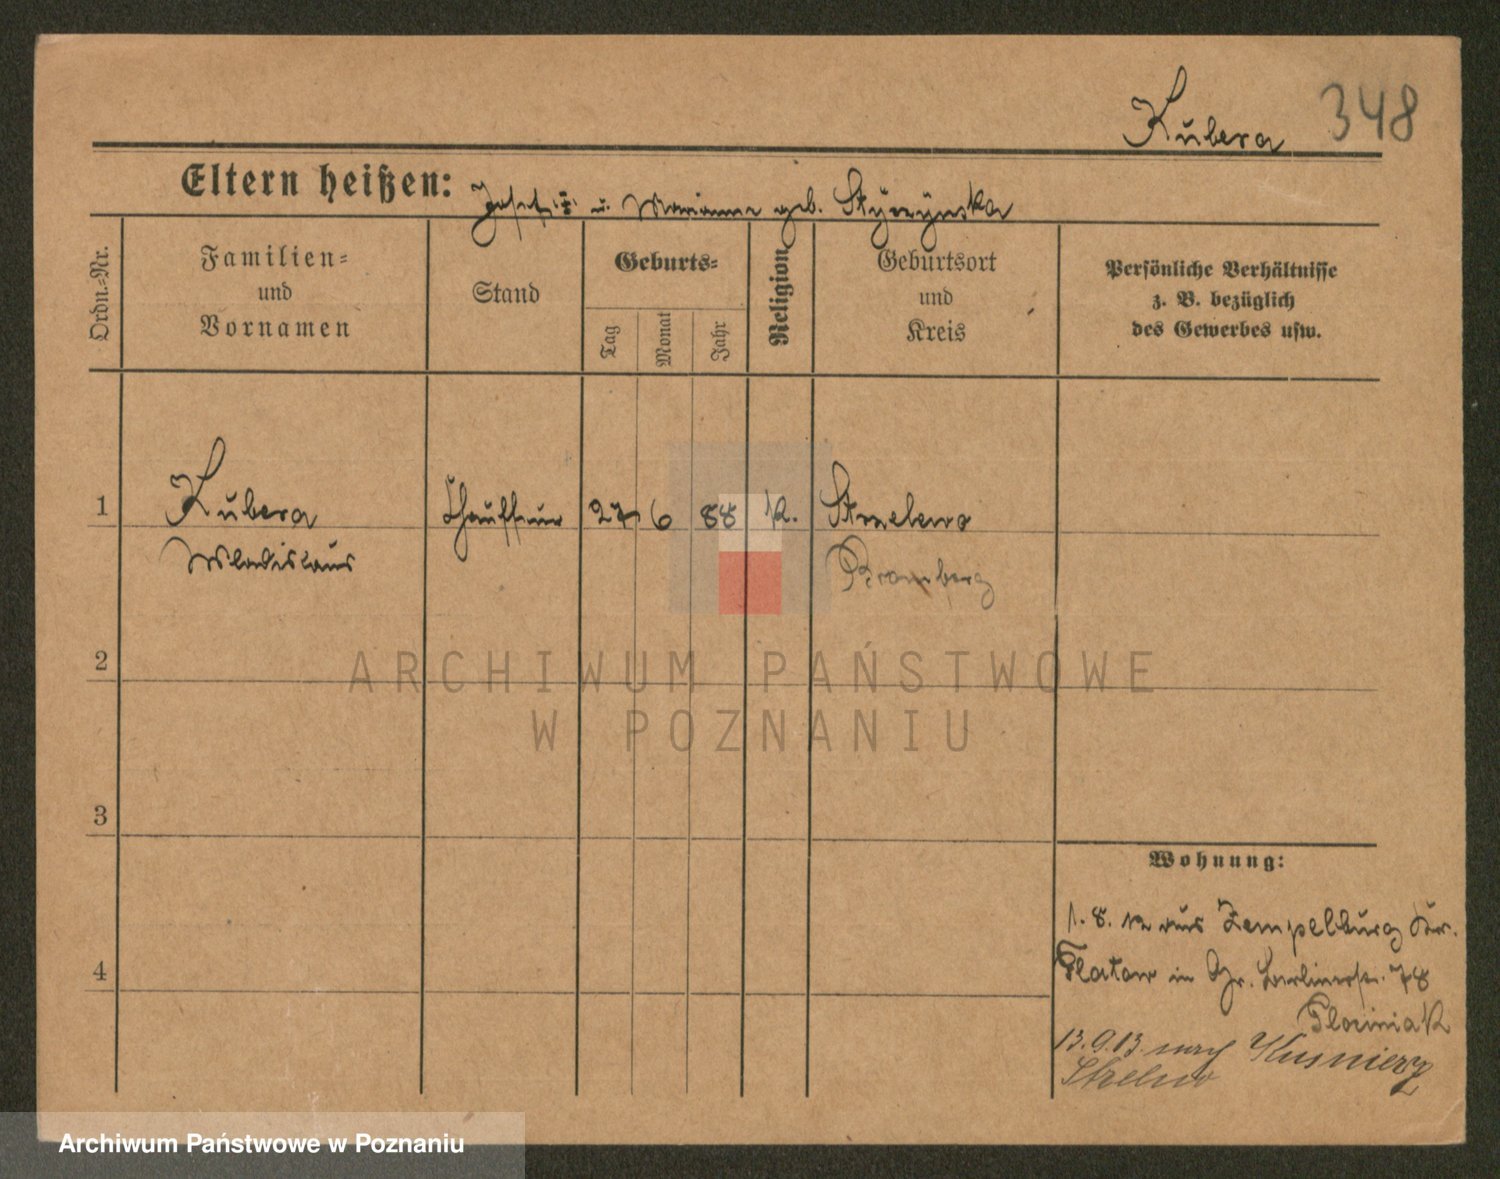 Kubera 348
Eltern heißen: Josef u. Marianne geb. Styczynska
Ordn.-Nr.
Familien-
und
Vornamen
Stand
Geburts-
Tag
Monat
Jahr
Religion
Geburtsort
und
Kreis
Persönliche Verhältnisse
z. B. bezüglich
des Gewerbes usw.
1 Kubera Chauffeur 27 6 88 K. Strzelewo
Wladislaus Bromberg
2
ARCHIWUM PAŃSTWOWE
W POZNANIU
3
4
Wohnung:
1. 8. 12 aus Zempelburg Kr.
Flatow in Gr. Berlinerstr. 78
Plociniak
13.9.13. nach Kusnierz
Strelno
Archiwum Państwowe w Poznaniu